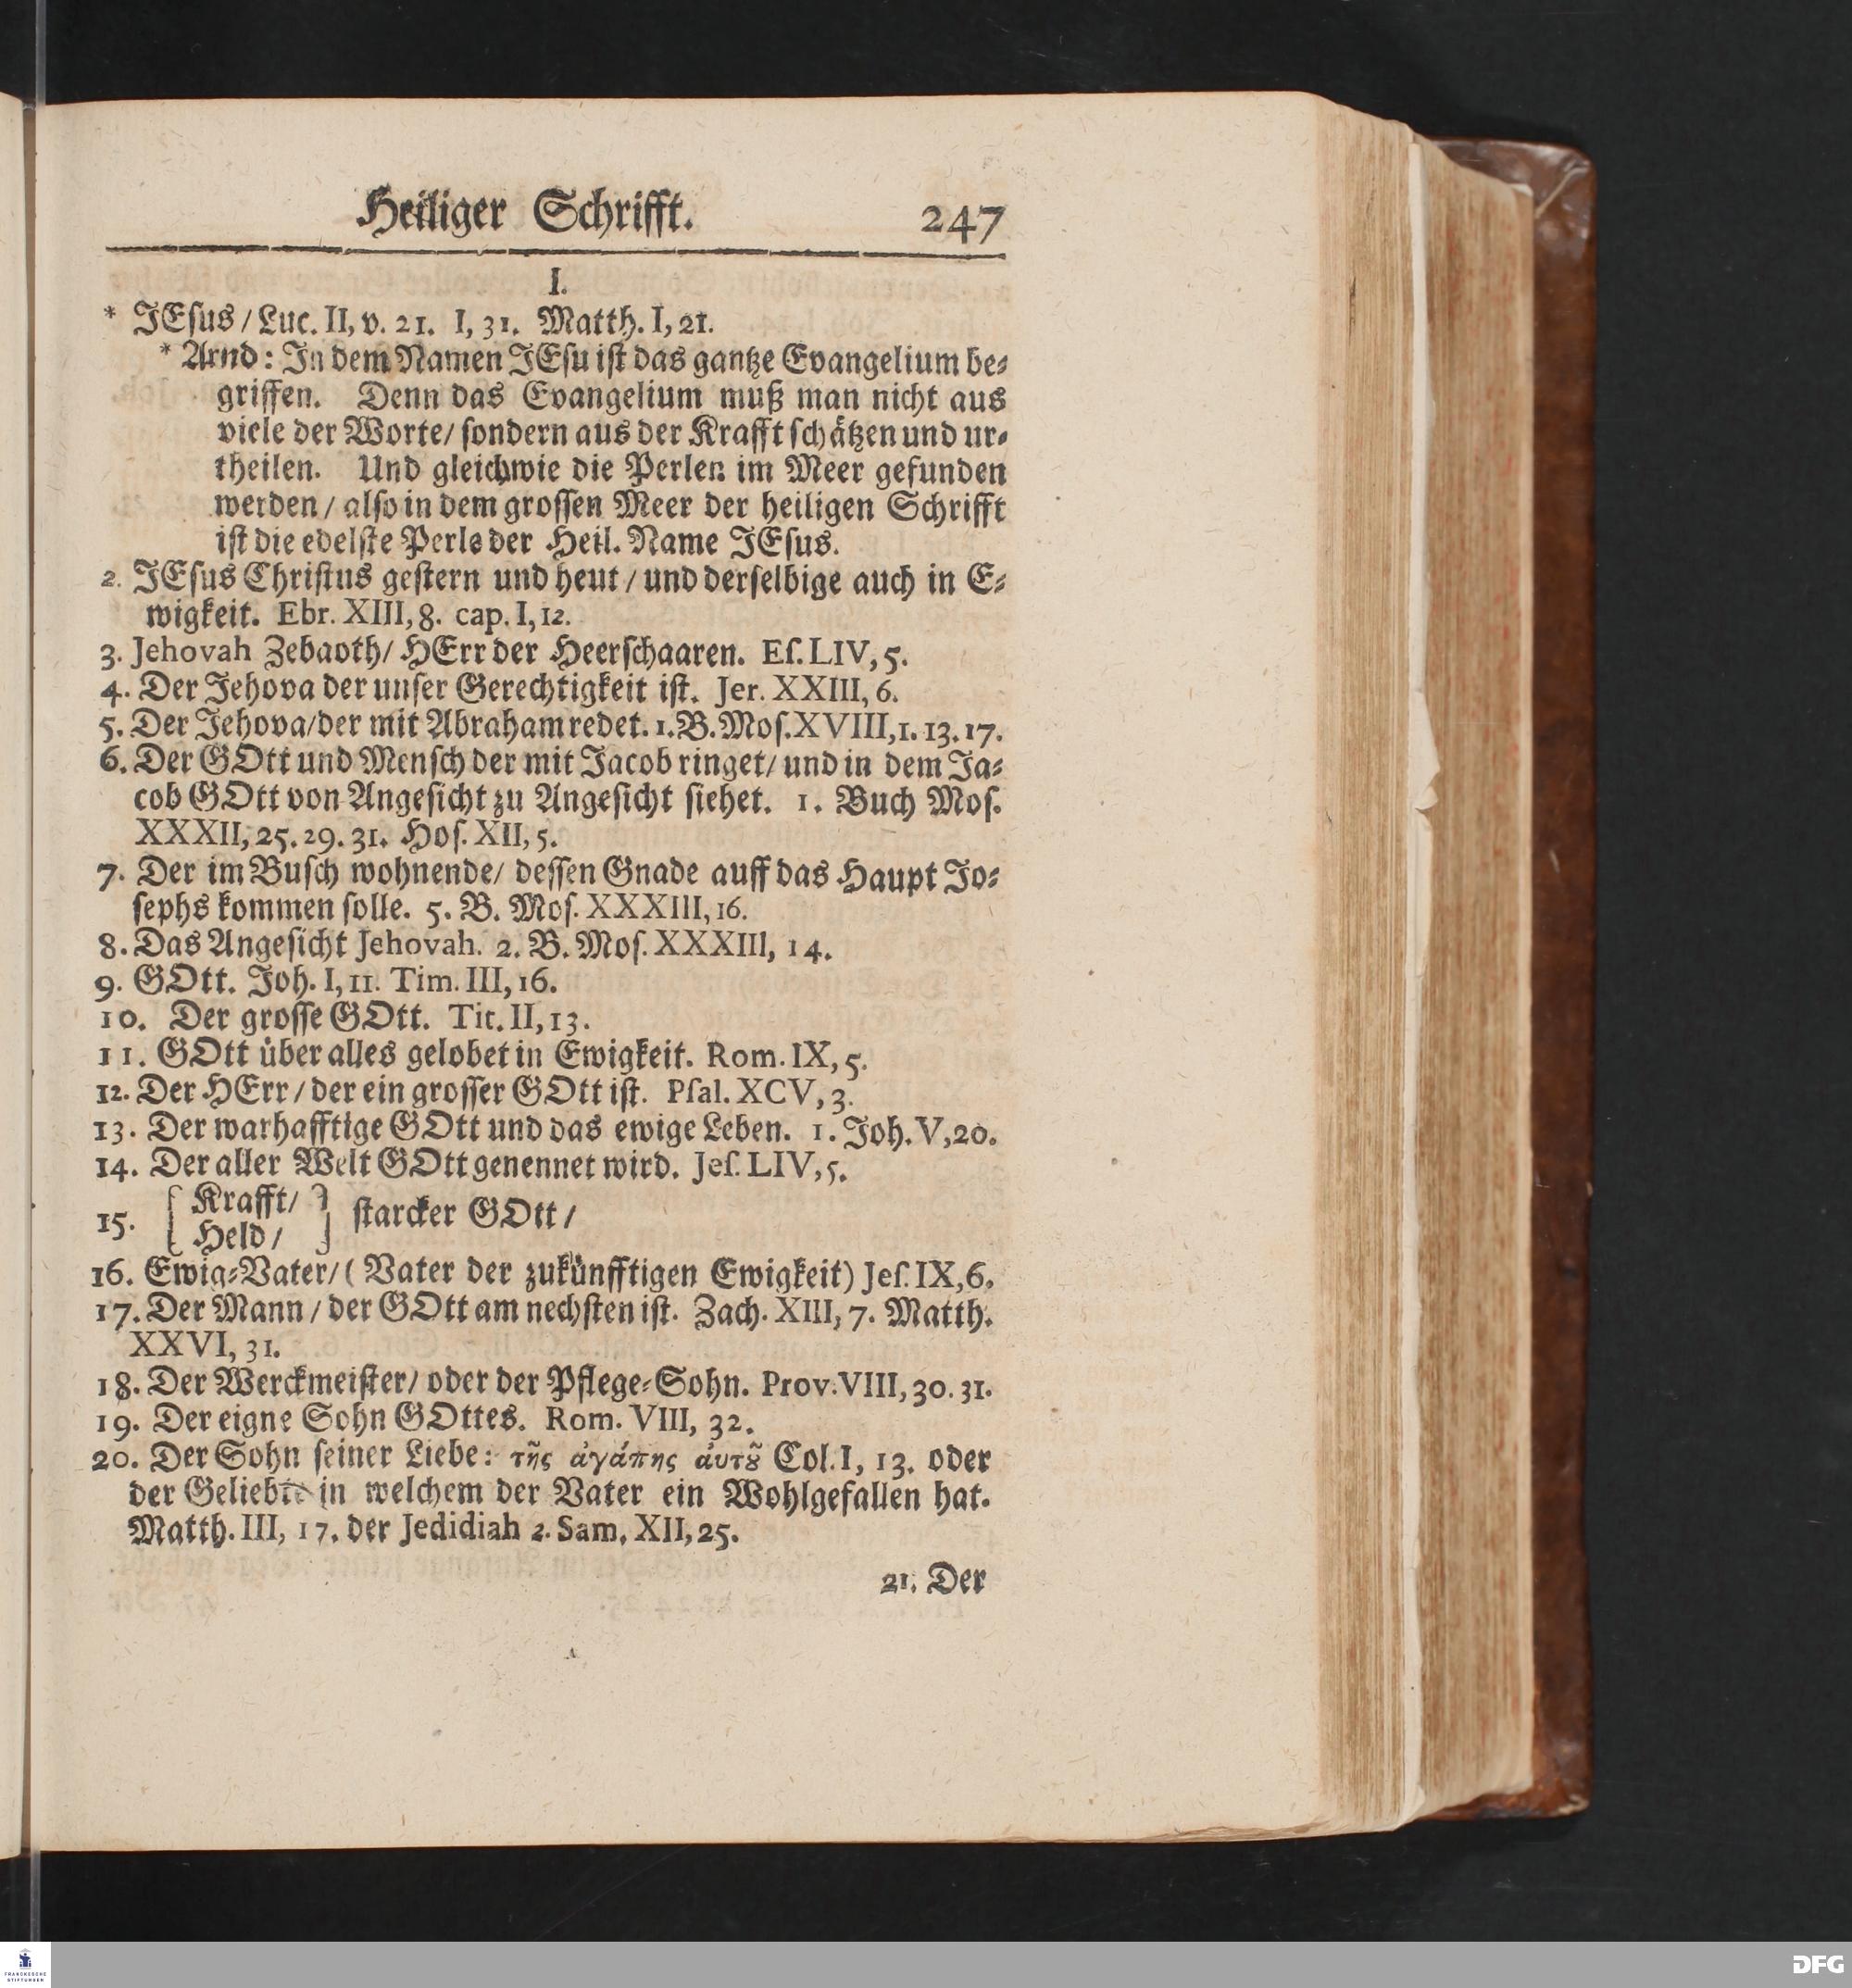 Heiliger Schrifft. 247
I.
* JEſus / Luc. II, v. 21. I, 31. Matth. I, 21.
* Arnd: In dem Namen JEſu iſt das gantze Evangelium be⸗
griffen. Denn das Evangelium muß man nicht aus
viele der Worte/ ſondern aus der Krafft ſchätzen und ur⸗
theilen. Und gleichwie die Perlen im Meer gefunden
werden / alſo in dem groſſen Meer der heiligen Schrifft
iſt die edelſte Perle der Heil. Name JEſus.
2. JEſus Chriſtus geſtern und heut / und derſelbige auch in E⸗
wigkeit. Ebr. XIII, 8. cap. I, 12.
3. Jehovah Zebaoth/ HErr der Heerſchaaren. Eſ. LIV, 5.
4. Der Jehova der unſer Gerechtigkeit iſt. Jer. XXIII, 6.
5. Der Jehova/der mit Abraham redet. 1. B. Moſ. XVIII, 1. 13. 17.
6. Der GOtt und Menſch der mit Jacob ringet/ und in dem Ja⸗
cob GOtt von Angeſicht zu Angeſicht ſiehet. 1. Buch Moſ.
XXXII, 25. 29. 31. Hoſ. XII, 5.
7. Der im Buſch wohnende/ deſſen Gnade auff das Haupt Jo⸗
ſephs kommen ſolle. 5. B. Moſ. XXXIII, 16.
8. Das Angeſicht Jehovah. 2. B. Moſ. XXXIII, 14.
9. GOtt. Joh. I, 11. Tim. III, 16.
10. Der groſſe GOtt. Tit. II, 13.
11. GOtt über alles gelobet in Ewigkeit. Rom. IX, 5.
12. Der HErr / der ein groſſer GOtt iſt. Pſal. XCV, 3.
13. Der warhafftige GOtt und das ewige Leben. 1. Joh. V, 20.
14. Der aller Welt GOtt genennet wird. Jeſ. LIV, 5.
Krafft/
15. { } ſtarcker GOtt /
Held /
16. Ewig⸗Vater/ ( Vater der zukünfftigen Ewigkeit) Jeſ. IX, 6.
17. Der Mann / der GOtt am nechſten iſt. Zach. XIII, 7. Matth.
XXVI, 31.
18. Der Werckmeiſter/ oder der Pflege⸗Sohn. Prov. VIII, 30. 31.
19. Der eigne Sohn GOttes. Rom. VIII, 32.
20. Der Sohn ſeiner Liebe: τῆς ἀγάπης ἀυτȣ͂ Col. I, 13. oder
der Geliebte in welchem der Vater ein Wohlgefallen hat.
Matth. III, 17. der Jedidiah 2. Sam. XII, 25.
21. Der
FRANCKESCHE
STIFTUNGEN
DFG